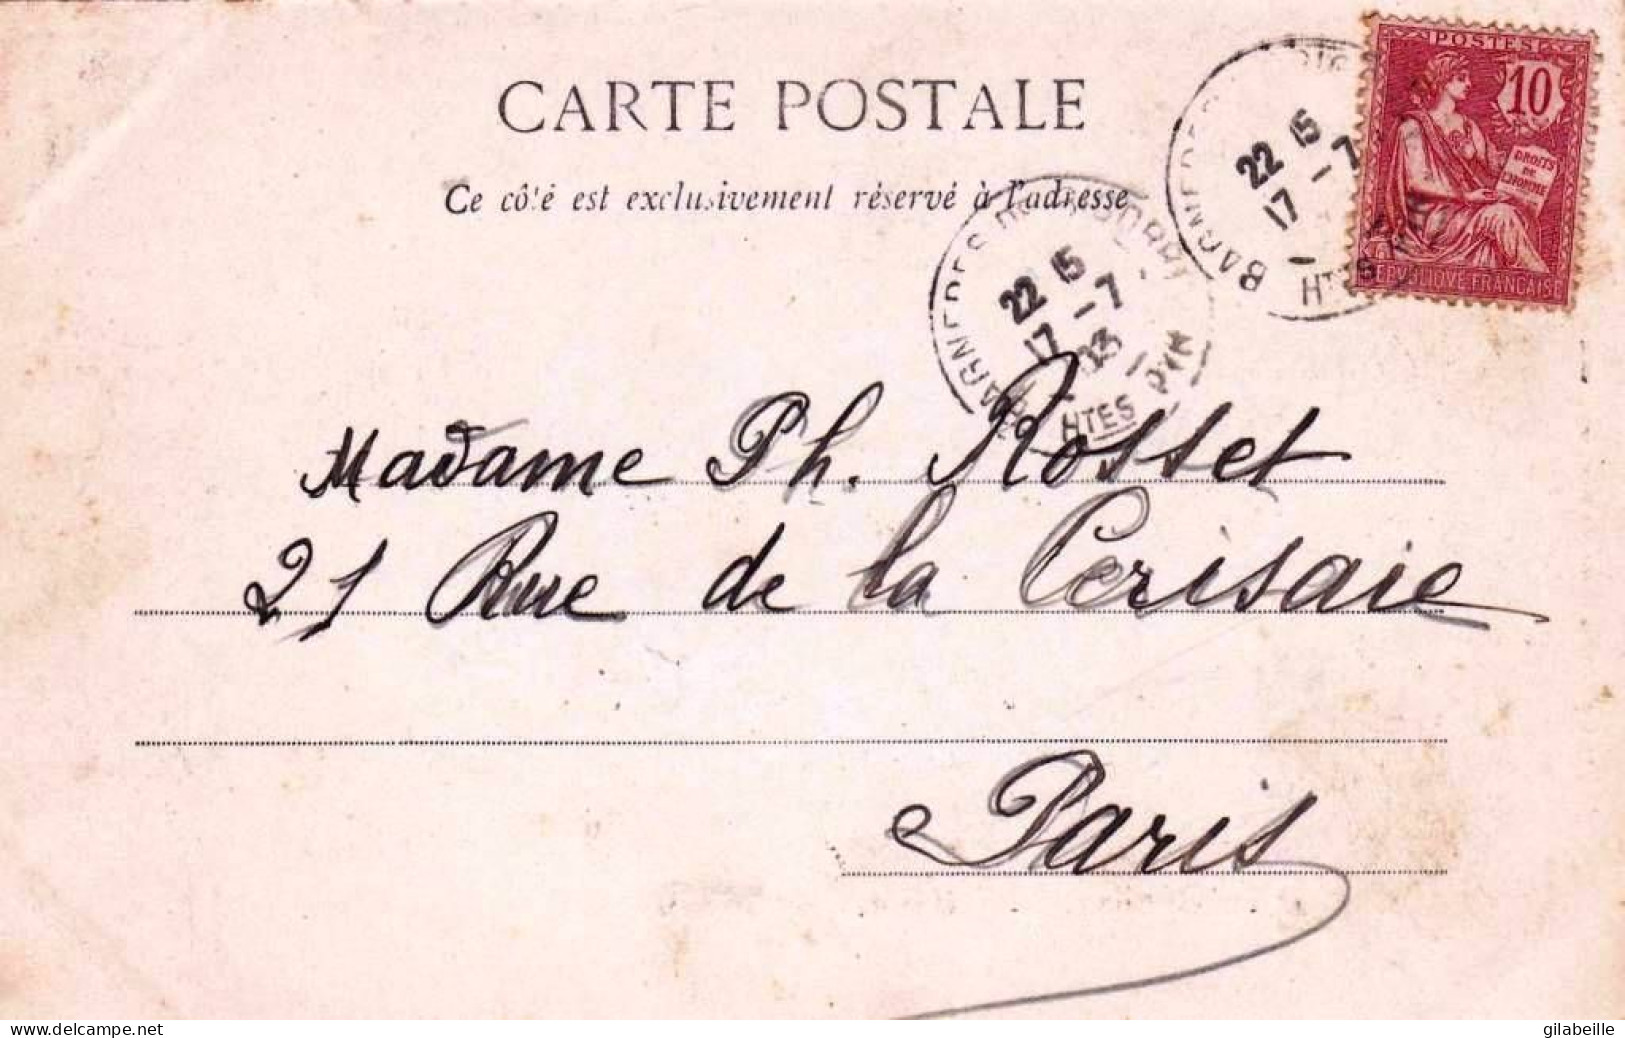 CARTE POSTALE
Ce côté est exclusivement réservé à l'adresse
POSTES
10
DROITS
DE
L'HOMME
REPUBLIQUE FRANÇAISE
BAGNERES
22 15
17 - 7
HTES
BAGNERES DE BIGORRE
22 15
17 - 7
03
HTES PYR
Madame Ph. Rosset
21 Rue de la Cerisaie
Paris
www.delcampe.net
gilabeille